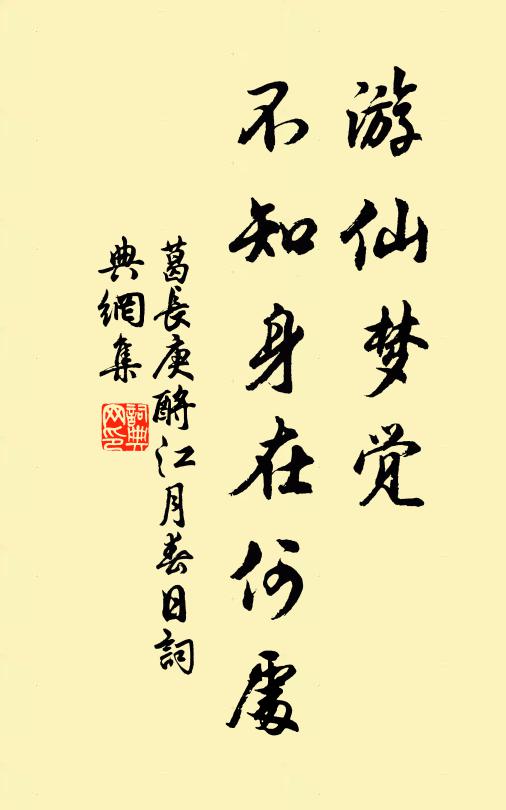 游仙梦觉
不知身在何處
葛長庚酹江月春日詞
典網集
詞典網印